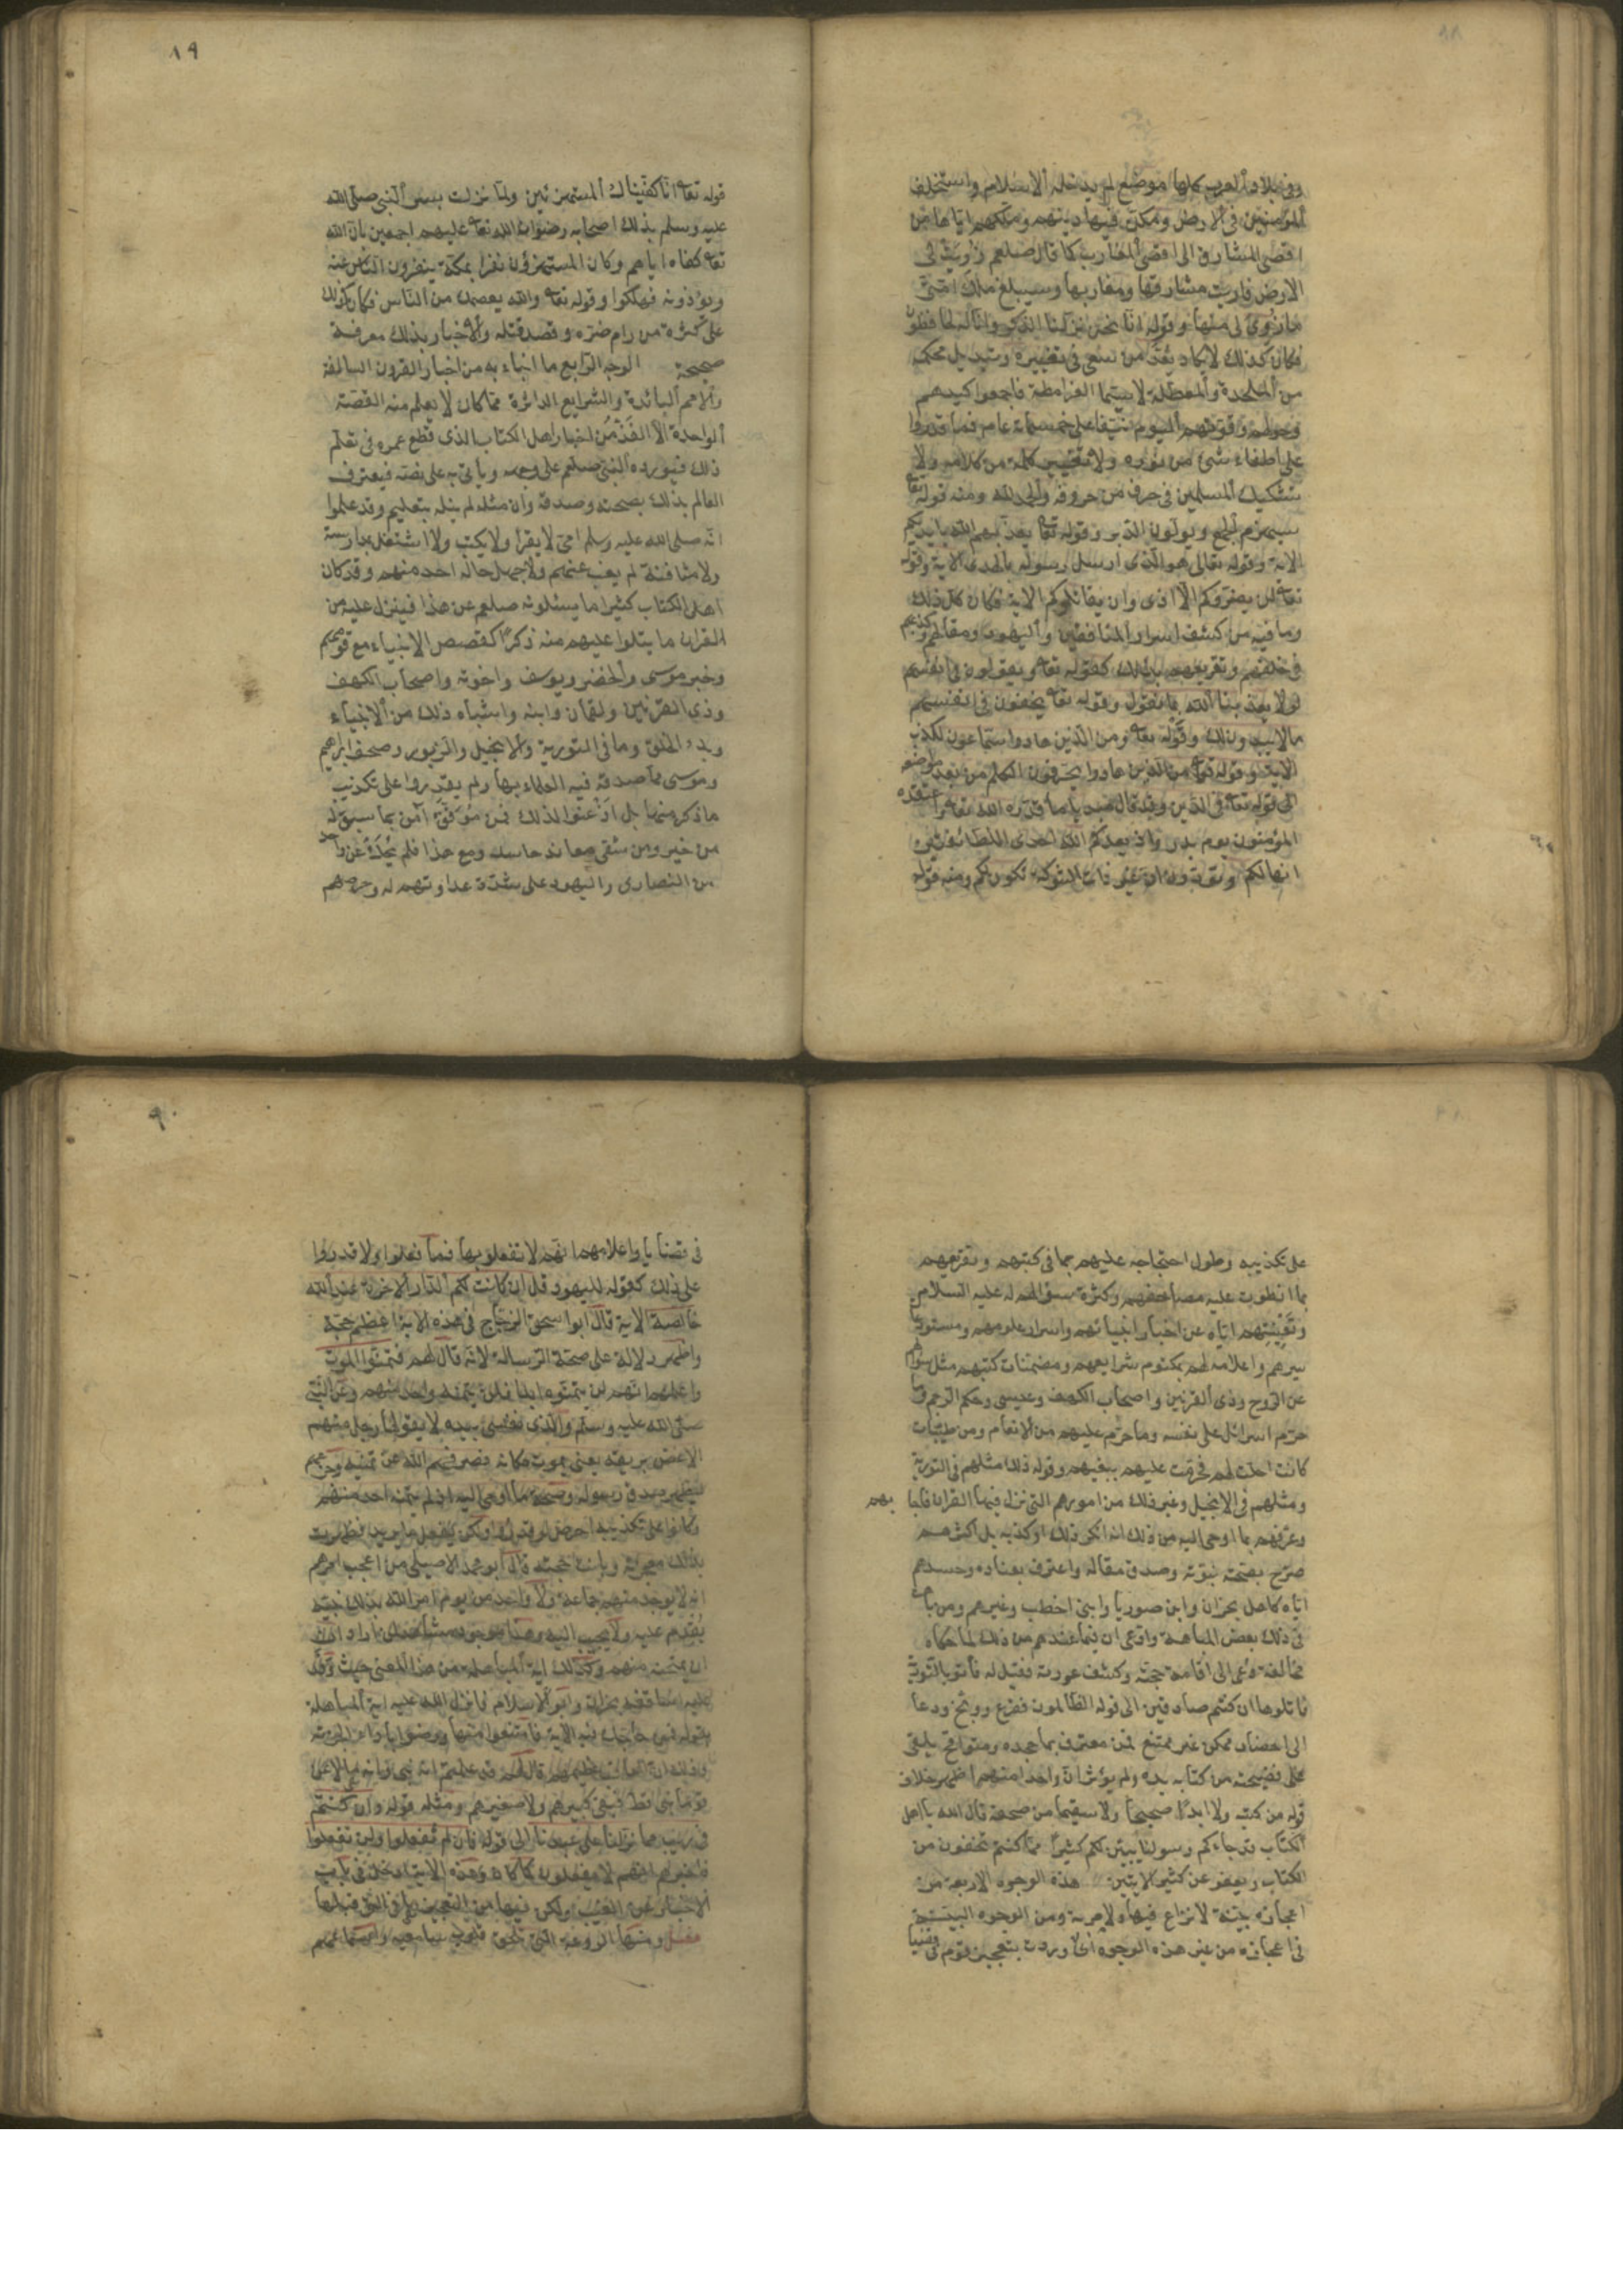 وفى بلاد العرب كلها موضع لم يدخله الاسلام واستخلف
المؤمنين فى الارض ومكن فيها دينهم وملكهم اياها من
اقصى المشارق الى اقصى المغارب كما قال صلعم زويت لى
الارض فاريت مشارقها ومغاربها وسيبلغ ملك امتى
ما زوى لى منها وقوله انا نحن نزلنا الذكر وانا له لحافظون
فكان كذلك لا يكاد يعد من سعى فى تغييره وتبديل محكمه
من الملحدة والمعطلة لا سيما القرامطة فاجمعوا كيدهم
وحولهم وقوتهم اليوم نيفا على خمسماية عام فما قدروا
على اطفاء شئ من نوره ولا تغيير كلمة من كلامه ولا
تشكيك المسلمين فى حرف من حروفه والحمد لله ومنه قوله تعا
سيهزم الجمع ويولون الدبر وقوله تعا يعذبهم الله بايديكم
الاية وقوله تعالى هو الذى ارسل رسوله بالهدى الاية وقوله
تعا لن يضروكم الا اذى وان يقاتلوكم الاية فكان كل ذلك
وما فيه من كشف اسرار المنافقين واليهود ومقالهم وكذبهم
فى حلفهم وتقريعهم بذلك كقوله تعا ويقولون فى انفسهم
لولا يعذبنا الله بما نقول وقوله تعا يخفون فى انفسهم
ما لا يبدون لك وقوله تعا ومن الذين هادوا سماعون للكذب
الاية وقوله تعا من الذين هادوا يحرفون الكلم من بعد مواضعه
الى قوله تعا فى الدين وقد قال مبديا ما قدره الله تعا واعتقده
المؤمنون يوم بدر واذ يعدكم الله احدى الطائفتين
انها لكم وتودون ان غير ذات الشوكة تكون لكم ومنه قوله
٨٩
قوله تعا انا كفيناك المستهزئين ولما نزلت بشر النبى صلى الله
عليه وسلم بذلك اصحابه رضوان الله تعا عليهم اجمعين بان الله
تعا كفاه اياهم وكان المستهزؤن نفرا بمكة ينفرون الناس عنه
ويؤذونه فهلكوا وقوله تعا والله يعصمك من الناس فكان كذلك
على كثرة من رام ضره وقصد قتله والاخبار بذلك معرفة
صحيحة الوجه الرابع ما انباء به من اخبار القرون السالفة
والامم البائدة والشرايع الداثرة مما كان لا يعلم منه القصة
الواحدة الا الفذ من اخبار اهل الكتاب الذى قطع عمره فى تعلم
ذلك فيورده النبى صلعم على وجهه وياتى به على نصه فيعترف
العالم بذلك بصحته وصدقه وان مثله لم ينله بتعليم وقد علموا
انه صلى الله عليه وسلم امى لا يقرا ولا يكتب ولا اشتغل بمدارسة
ولا مثافنة لم يغب عنهم ولا جهل حاله احد منهم وقد كان
اهل الكتاب كثيرا ما يسئلونه صلعم عن هذا فينزل عليه من
القران ما يتلوا عليهم منه ذكرا كقصص الانبياء مع قومهم
وخبر موسى والخضر ويوسف واخوته واصحاب الكهف
وذى القرنين ولقمان وابنه واشباه ذلك من الانبياء
وبدء الخلق وما فى التورية والانجيل والزبور وصحف ابراهيم
وموسى مما صدقه فيه العلماء بها ولم يقدروا على تكذيب
ما ذكر منها بل اذعنوا لذلك فمن موفق آمن بما سبق له
من خير ومن شقى معاند حاسد ومع هذا فلم يحك عن واحد
من النصارى واليهود على شدة عداوتهم له وحرصهم
على تكذيبه وطول احتجاجه عليهم بما فى كتبهم وتقريعهم
بما انطوت عليه مصاحفهم وكثرة سؤالهم له عليه السلام
وتعنيتهم اياه عن اخبار انبيائهم واسرار علومهم ومستودعات
سيرهم واعلامه لهم بمكتوم شرايعهم ومضمنات كتبهم مثل سؤالهم
عن الروح وذى القرنين واصحاب الكهف وعيسى وحكم الرجم وما
حرم اسرائل على نفسه وما حرم عليهم من الانعام ومن طيبات
كانت احلت لهم فحرمت عليهم ببغيهم وقوله ذلك مثلهم فى التورية
ومثلهم فى الانجيل وغير ذلك من امورهم التى نزل فيها القران فاجا بهم
وعرفهم بما اوحى اليه من ذلك انه انكر ذلك او كذبه بل اكثرهم
صرح بصحة نبوته وصدق مقاله واعترف بعناده وحسدهم
اياه كاهل نجران وابن صوريا وابنى اخطب وغيرهم ومن باهت
فى ذلك بعض المباهتة وادعى ان فيما عندهم من ذلك لما حكاه
مخالفة دعى الى اقامة حجته وكشف عورته فقيل له فأتوا بالتورية
فاتلوها ان كنتم صادقين الى قوله الظالمون فقرع ووبخ ودعا
الى احضار ممكن غير ممتنع فمن معترف بما جحده ومتواقح يلقى
على فضيحته من كتابه يده ولم يؤثر ان واحدا منهم اظهر خلاف
قوله من كتبه ولا ابدا صحيحا ولا سقيما من صحفه قال الله يا اهل
الكتاب قد جاءكم رسولنا يبين لكم كثيرا مما كنتم تخفون من
الكتاب ويعفو عن كثير الايتين هذه الوجوه الاربعة من
اعجازه بينة لا نزاع فيها ولا مرية ومن الوجوه البينة
فى اعجازه من غير هذه الوجوه آى وردت بتعجيز قوم فى قضايا
٩٠
فى قضايا واعلامهم انهم لا تفعلوبها فما فعلوا ولا قدروا
على ذلك كقوله لليهود قل ان كانت لكم الدار الاخرة عند الله
خالصة الاية قال ابو اسحق الزجاج فى هذه الاية اعظم حجة
واظهر دلالة على صحة الرسالة لانه قال لهم فتمنوا الموت
واعلمهم انهم لن يتمنوه ابدا فلم يتمنه واحد منهم وعن النبى
صلى الله عليه وسلم والذى نفسى بيده لا يقولها رجل منهم
الا غص بريقه يعنى يموت مكانه فصرفهم الله عن تمنيه وجزعهم
ليظهر صدق رسوله وصحة ما اوحى اليه اذ لم يتمنه احد منهم
وكانوا على تكذيبه احرص لو قدروا ولكن الله يفعل ما يريد فظهرت
بذلك معجزته وبانت حجته قال ابو محمد الاصيلى من اعجب امرهم
انه لا يوجد منهم جماعة ولا واحد من يوم امر الله بذلك نبيه
يقدم عليه ولا يجيب اليه وهذا موجود مشاهد لمن اراد
ان يمتحنه منهم وكذلك اية المباهلة من هذا المعنى حيث وفد
عليه اساقفة نجران وابوا الاسلام فانزل الله عليه اية المباهلة
بقوله فمن حاجك فيه الاية فامتنعوا منها ورضوا باداء الجزية
وذلك ان العاقب عظيمهم قال لهم قد علمتم انه نبى وانه ما لاعن
قوما نبى قط فبقى كبيرهم ولا صغيرهم ومثله قوله وان كنتم
فى ريب مما نزلنا على عبدنا الى قوله فان لم تفعلوا ولن تفعلوا
فاخبرهم انهم لا يفعلون كما كان وهذه الاية ادخل فى باب
الاخبار عن الغيب ولكن فيها من التعجيز ما فى التى قبلها
فصل ومنها الروعة التى تلحق قلوب سامعيه واسماعهم